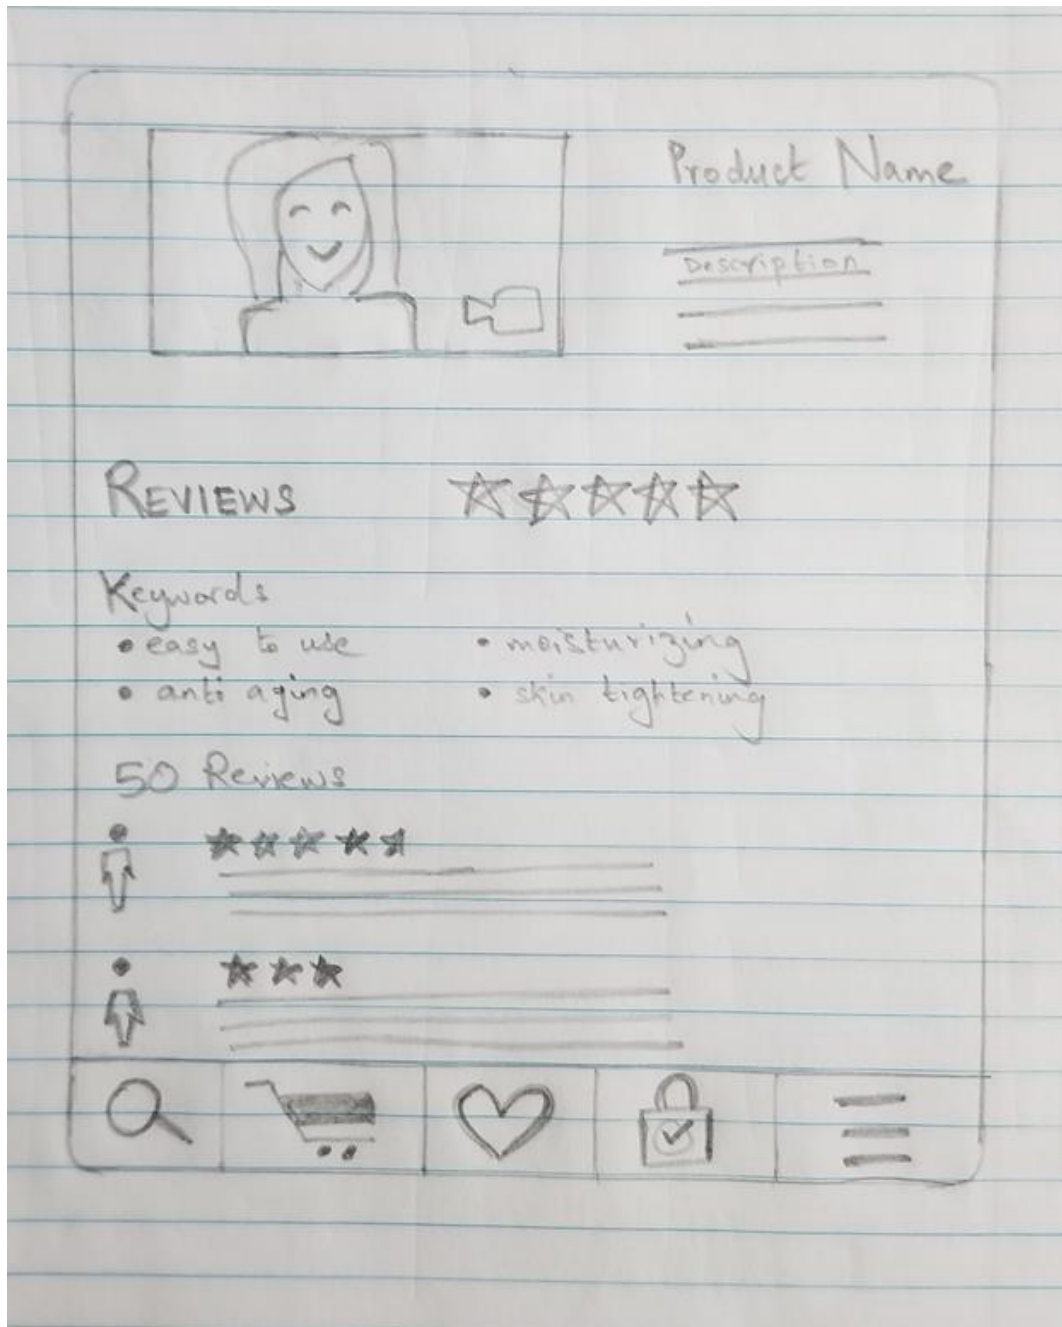 Product Name
Description
REVIEWS
Keywords
• easy to use • moisturizing
• anti aging • skin tightening
50 Reviews